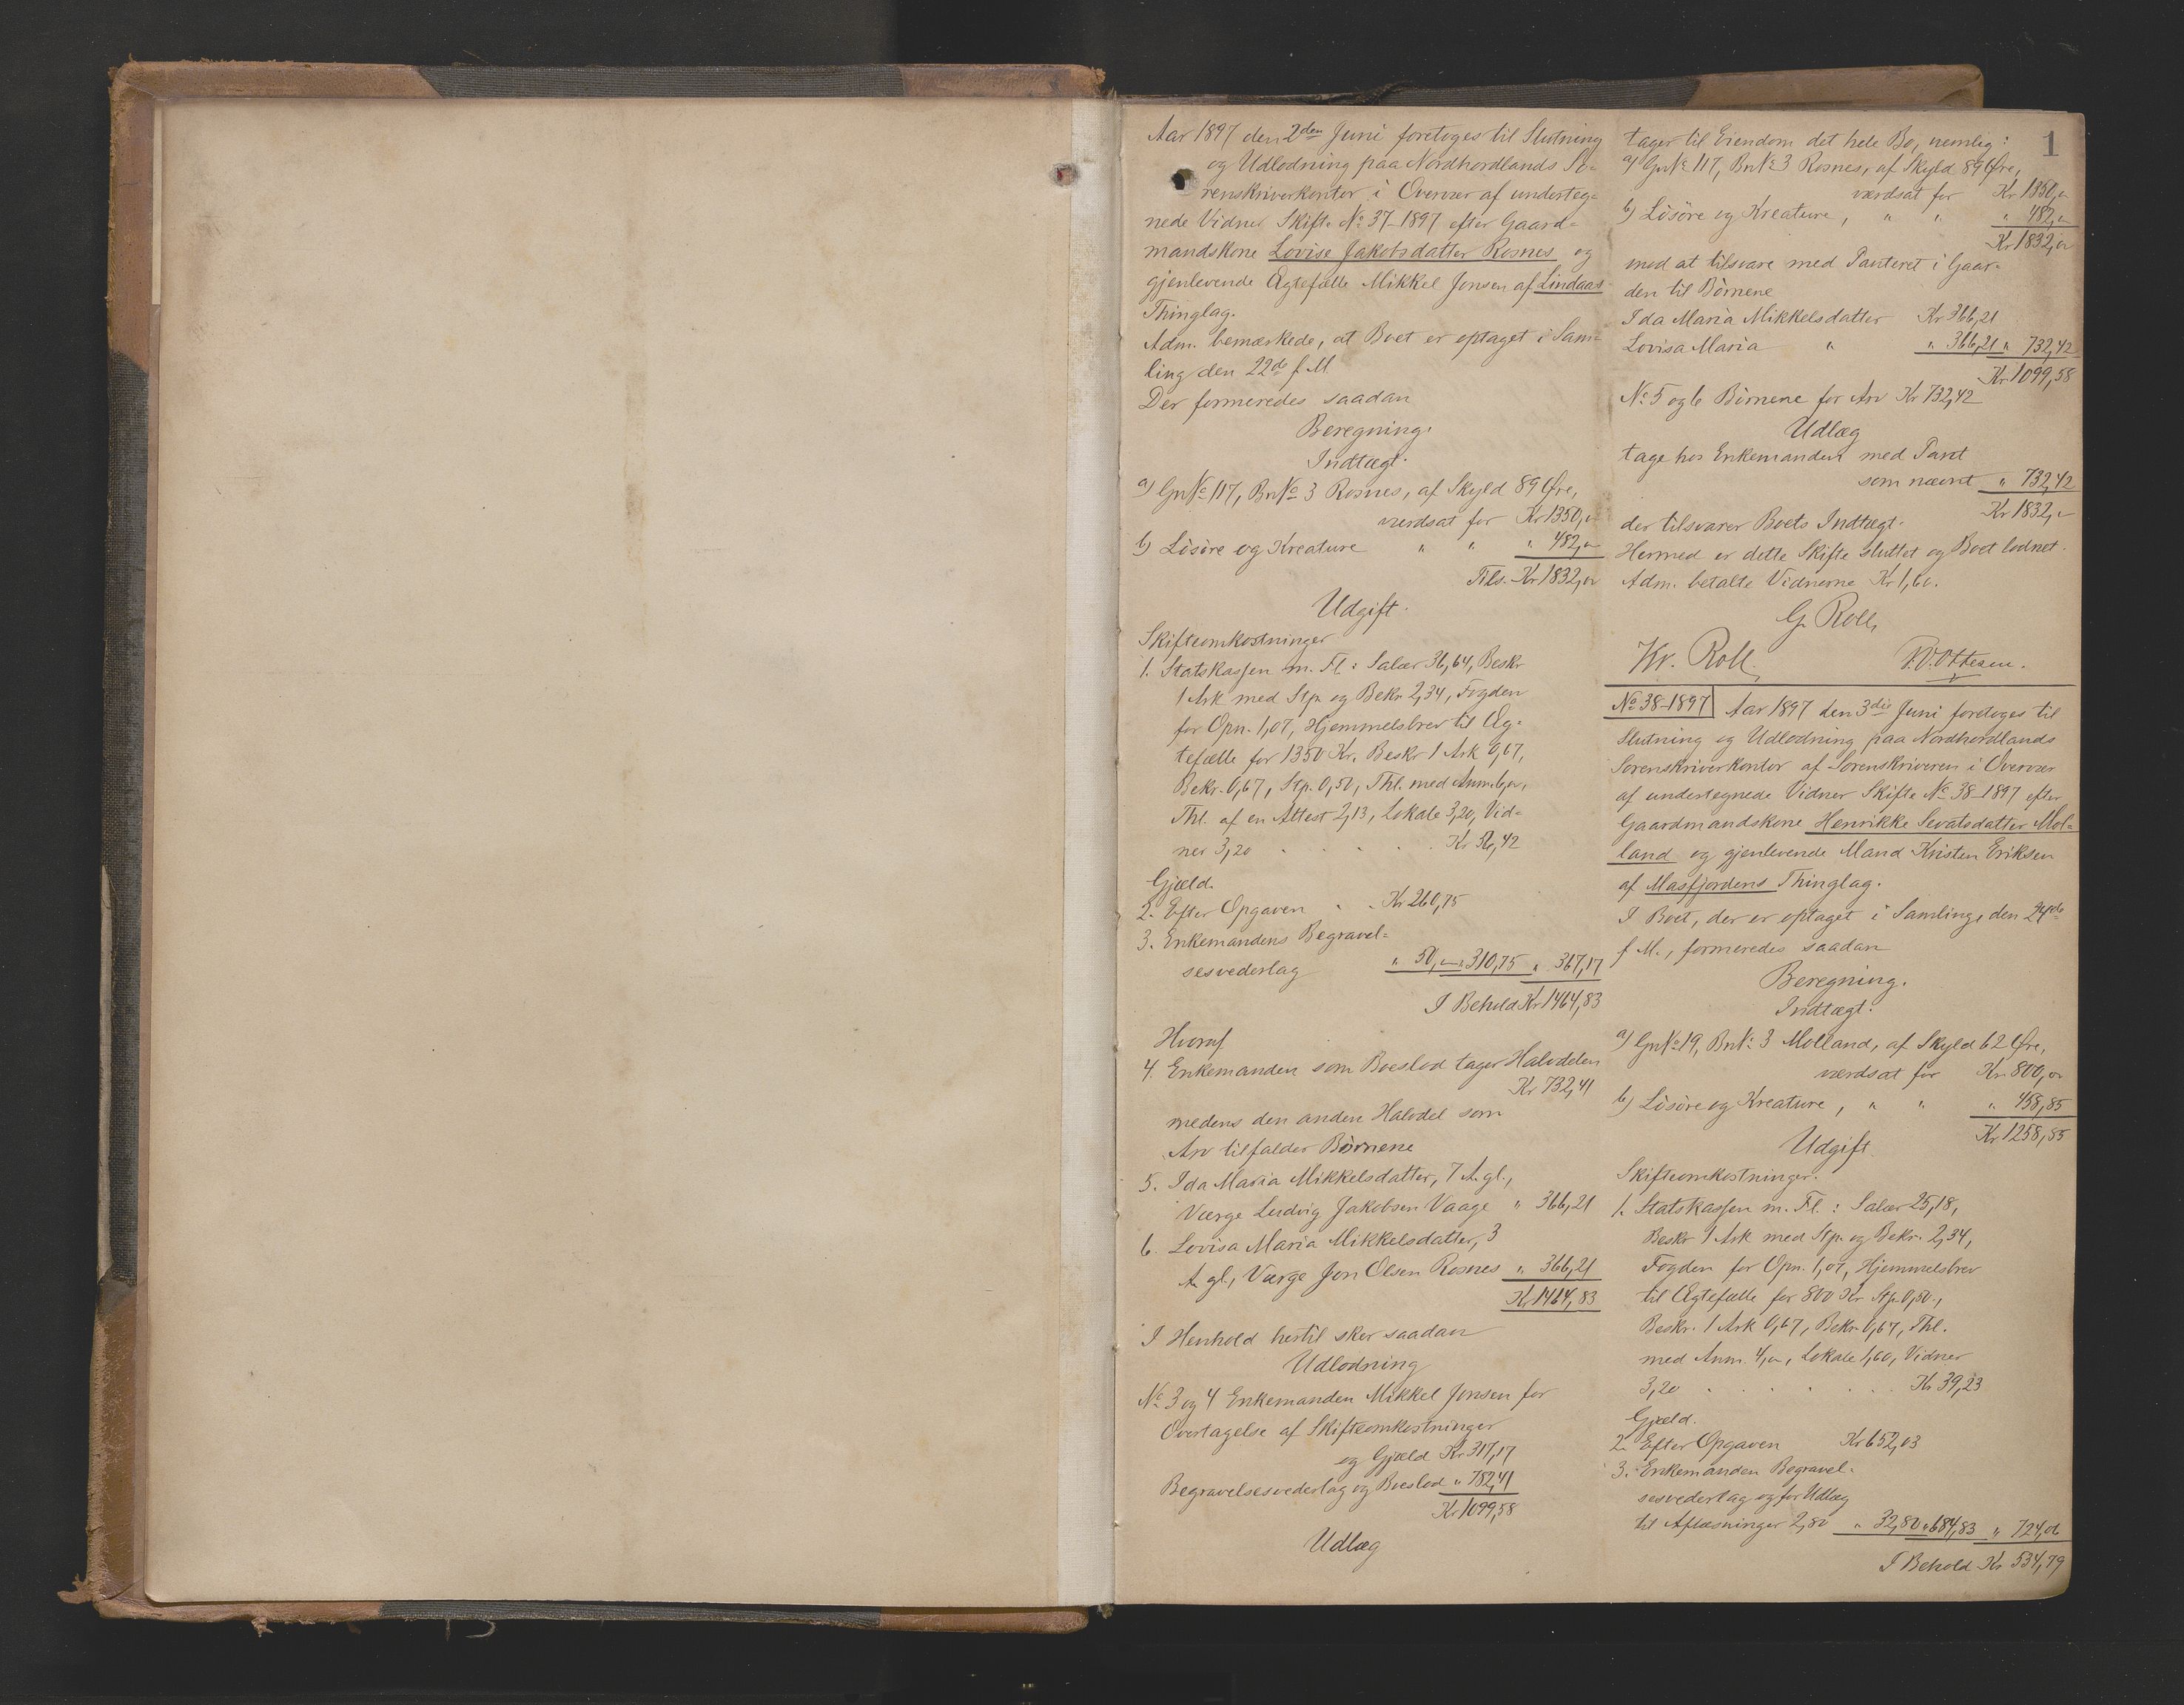 1
Aar 1897 den 2den Juni foretoges til Slutning
og Udlodning paa Nordhordlands So-
renskriverkontor i Overvær af underteg-
nede Vidner Skifte No 37-1897 efter Gaard-
mandskone Lovise Jakobsdatter Rosnes og
gjenlevende Ægtefælle Mikkel Jonsen af Lindaas
Thinglag.
Adm. bemærkede, at Boet er optaget i Sam-
ling den 22de f. M.
Der formeredes saadan
Beregning.
Indtægt.
a) GnNo 117, BnNo 3 Rosnes, af Skyld 89 Øre,
værdsat for Kr 1350,"
b) Løsøre og Kreature " " " 482,"
Tils. Kr 1832,"
Udgift.
Skifteomkostninger
1. Statskassen m. Fl: Salær 36,64, Beskr
1 Ark med Stp. og Bekr. 2,34, Fogden
for Opn. 1,07, Hjemmelsbrev til Æg-
tefælle for 1350 Kr. Beskr 1 Ark 0,67,
Bekr. 0,67, Stp. 0,50, Thl. med Anm. 6,",
Thl. af en Attest 2,13, Lokale 3,20, Vid-
ner 3,20 . . . . . Kr 56,42
Gjæld.
2. Efter Opgaven . . Kr 260,75
3. Enkemandens Begravel-
sesvederlag " 50," " 310,75 " 367,17
I Behold Kr 1464,83
Hvoraf
4. Enkemanden som Boeslod tager Halvdelen
Kr 732,41
medens den anden Halvdel som
Arv tilfalder Børnene
5. Ida Maria Mikkelsdatter, 7 A. gl.,
Værge Ludvig Jakobsen Vaage " 366,21
6. Lovisa Maria Mikkelsdatter, 3
A. gl., Værge Jon Olsen Rosnes " 366,21
Kr 1464,83
I Henhold hertil sker saadan
Udlodning
No 3 og 4 Enkemanden Mikkel Jonsen for
Overtagelse af Skifteomkostninger
og Gjæld Kr 317,17
Begravelsesvederlag og Boeslod " 782,41
Kr 1099,58
Udlæg
tager til Eiendom det hele Bo, nemlig:
a) GnNo 117, BnNo 3 Rosnes, af Skyld 89 Øre,
værdsat for Kr 1350,"
b) Løsøre og Kreature, " " " 482,"
Kr 1832,"
mod at tilsvare med Panteret i Gaar-
den til Børnene
Ida Maria Mikkelsdatter Kr 366,21
Lovisa Maria " " 366,21 " 732,42
Kr 1099,58
No 5 og 6 Børnene for Arv Kr 732,42
Udlæg
tage hos Enkemanden med Pant
som nævnt " 732,42
Kr 1832,"
der tilsvarer Boets Indtægt.
Hermed er dette Skifte sluttet og Boet lodnet.
Adm. betalte Vidnerne Kr 1,60.
G. Roll
Kr. Roll. Ottesen.
No 38-1897 Aar 1897 den 3die Juni foretoges til
Slutning og Udlodning paa Nordhordlands
Sorenskriverkontor af Sorenskriveren i Overvær
af undertegnede Vidner Skifte No 38-1897 efter
Gaardmandskone Henrikke Sevatsdatter Mol-
land og gjenlevende Mand Kristen Eriksen
af Masfjordens Thinglag.
I Boet, der er optaget i Samling den 24de
f. M., formeredes saadan
Beregning.
Indtægt.
a) GnNo 19, BnNo 3 Molland, af Skyld 62 Øre,
værdsat for Kr 800,"
b) Løsøre og Kreature, " " " 458,85
Kr 1258,85
Udgift
Skifteomkostninger.
1. Statskassen m. Fl.: Salær 25,18,
Beskr 1 Ark med Stp. og Bekr. 2,34,
Fogden for Opn. 1,07, Hjemmelsbrev
til Ægtefælle for 800 Kr Stp. 0,50,
Beskr. 1 Ark 0,67, Bekr. 0,67, Thl.
med Anm. 4,", Lokale 1,60, Vidner
3,20 . . . . . Kr 39,23
Gjæld.
2. Efter Opgaven Kr 652,03
3. Enkemanden Begravel-
sesvederlag og for Udlæg
til Aflæsninger 2,80 " 32,80 " 684,83 " 724,06
I Behold Kr 534,79